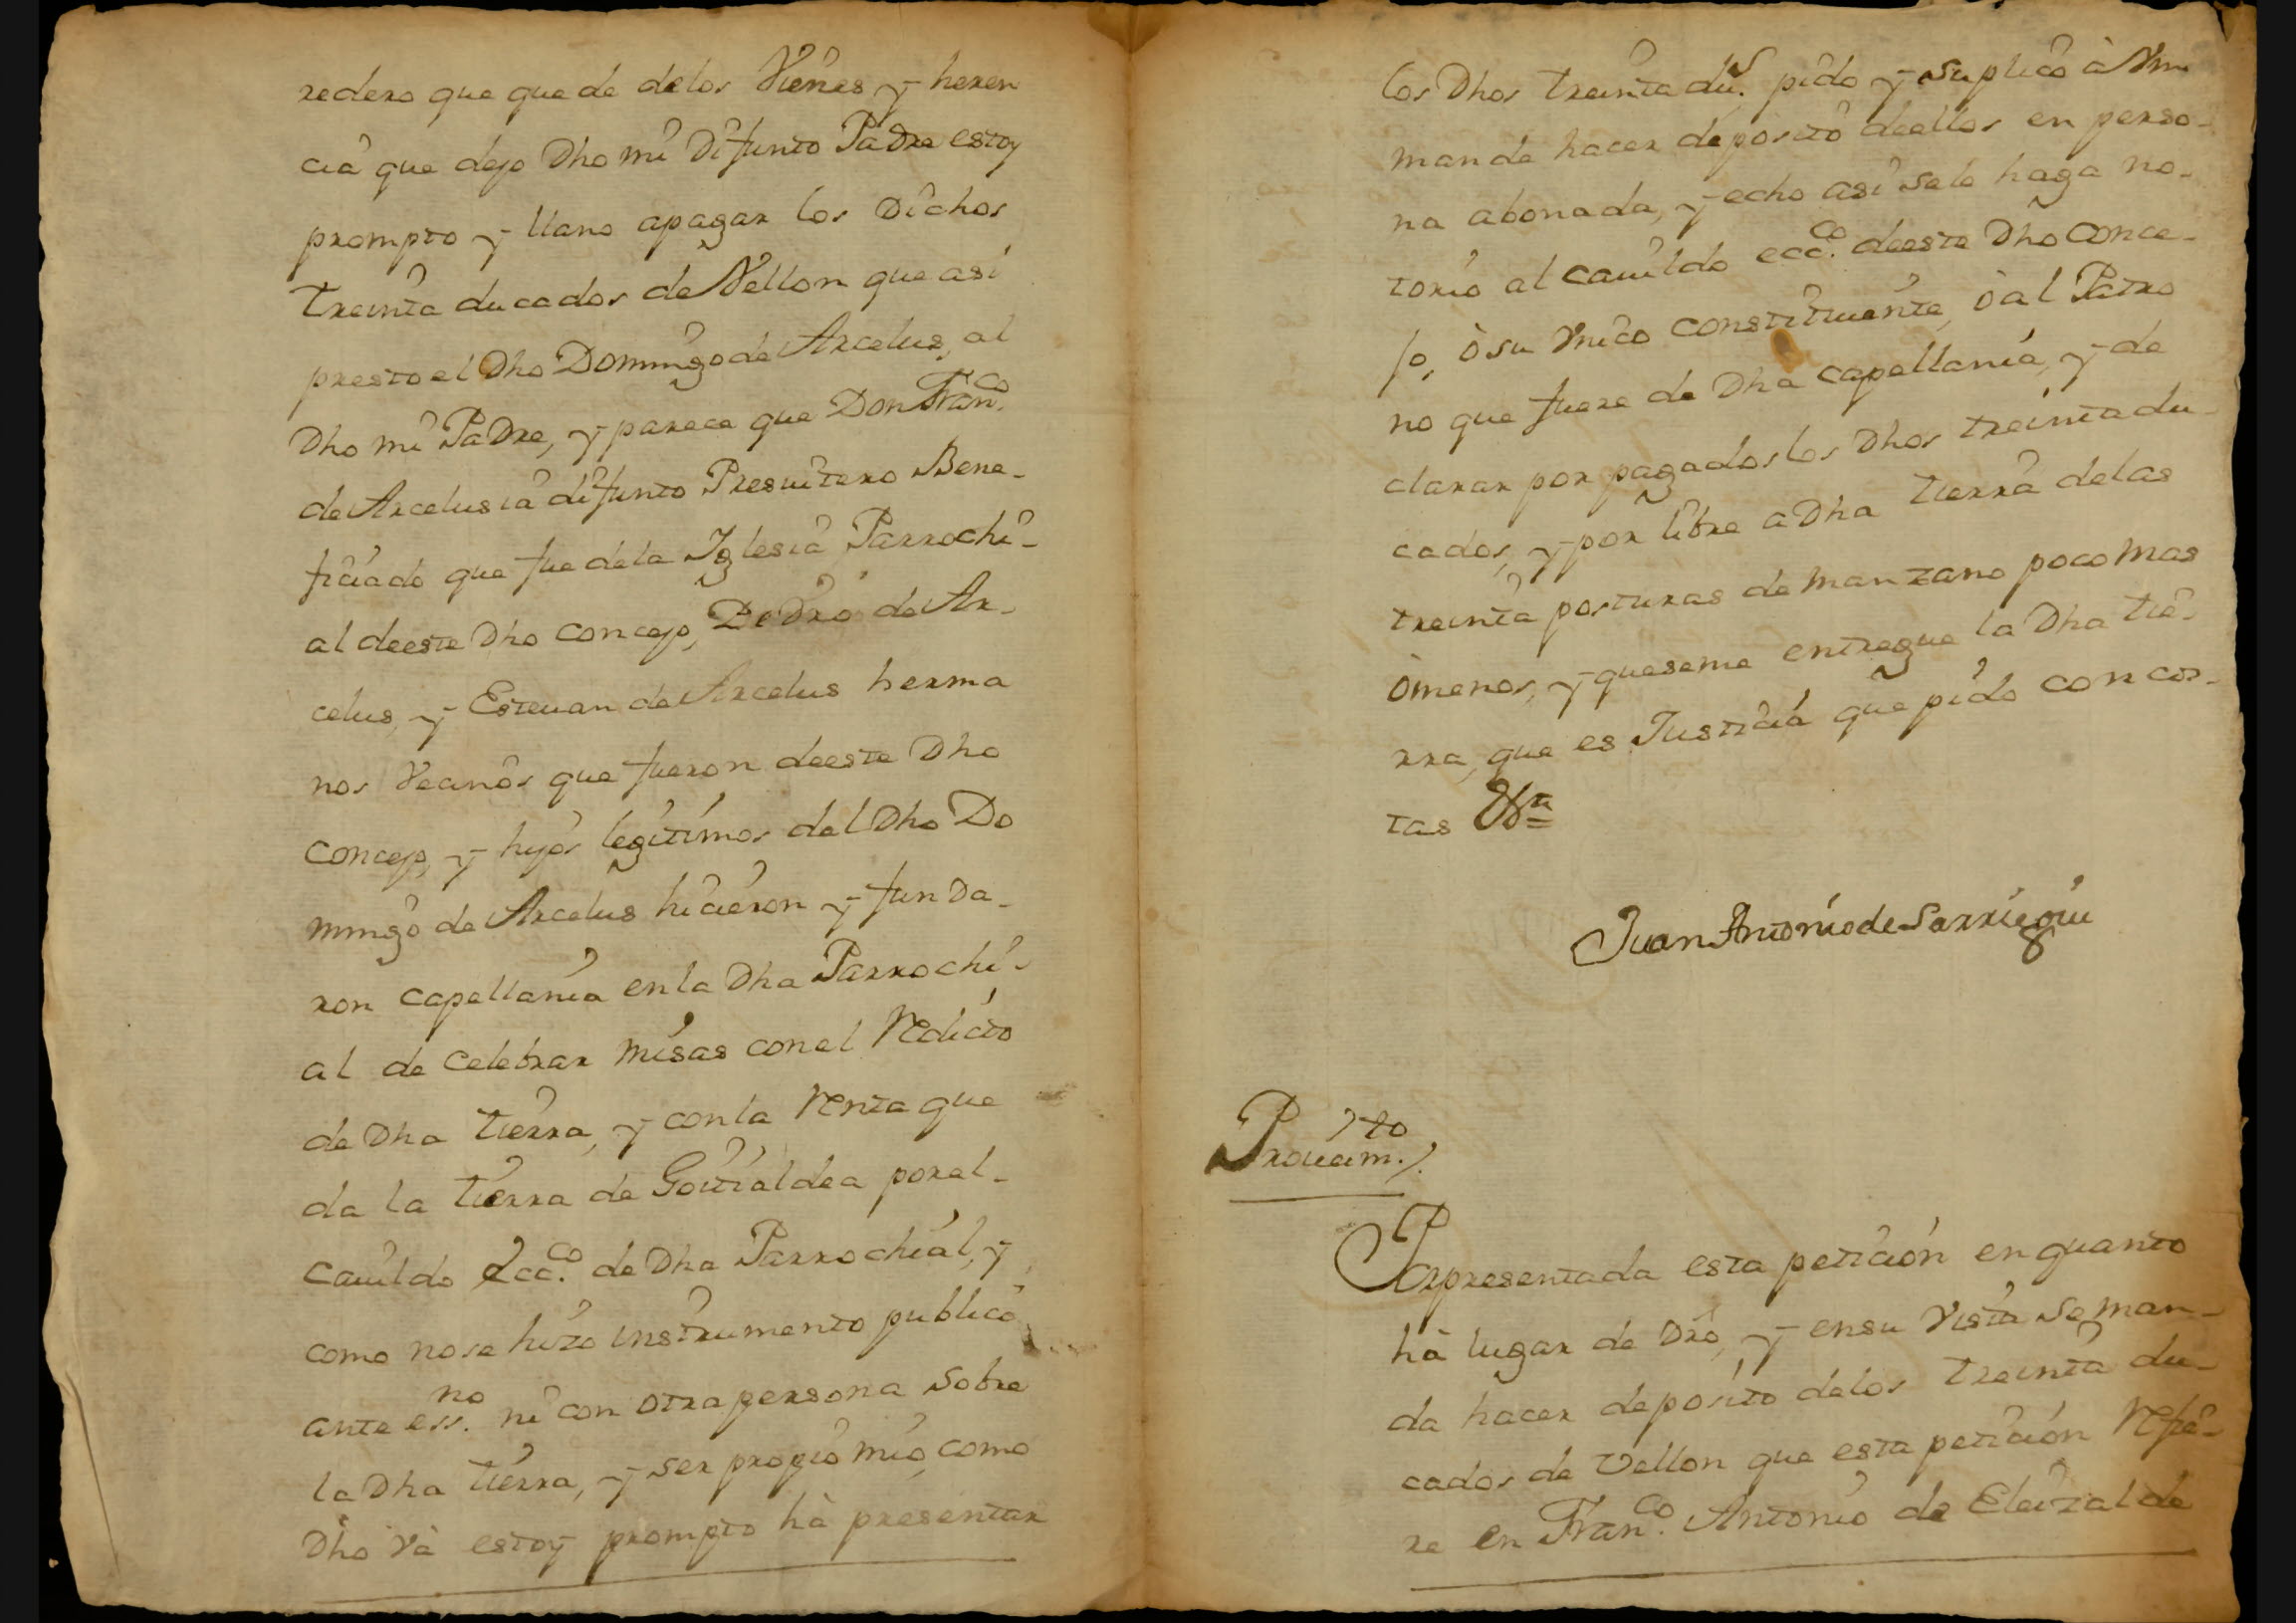 redero que quede delos Vienes y heren
cia que dejo Dho mi Difunto Padre estoy
prompto y llano apagar los Dichos
treinta ducados de Vellon que asi
presto el Dho Domingo de Arcelus, al
Dho mi Padre, y parece que Don Franco.
de Arcelus ia difunto Presuitero Bene-
ficiado que fue dela Iglesia Parrochi-
al deeste Dho concejo, Pedro de Ar-
celus, y Esteuan de Arcelus herma
nos Vecinos que fueron deeste Dho
concejo, y hijos legitimos del Dho Do
mingo de Arcelus hicieron y funda-
ron capellania en la Dha Parrochi-
al de celebrar misas con el Redicto
de Dha tierra, y con la Renta que
da la tierra de Goitialdea por el-
cauildo Ecco. de Dha Parrochial, y
como no se hizo instrumento publico
ante essno. ni con otra persona sobre
la Dha tierra, y ser propio mio, como
Dho Và estoy prompto hà presentar
los Dhos treinta dus. pido y suplico à Vm
mande hacer deposito deellos en perso-
na abonada, y echo asi se lo haga no-
torio al cauildo ecco. deeste Dho conce-
jo, ò su Vnico constituiente, ò al Patro
no que fuere de Dha capellania, y de
clarar por pagados los Dhos treinta du-
cados, y por libre a Dha tierra delas
treinta posturas de manzano poco mas
òmenos, y queseme entregue la Dha tie-
rra, que es Justicia que pido con cos-
tas &ta
Juan Antonio de Sarriegui
Proueimto.
Representada esta peticion en quanto
hà lugar de Dro, y ensu Vista se man-
da hacer deposito delos treinta du-
cados de Vellon que esta peticion Refie-
re en Franco. Antonio de Eleizalde